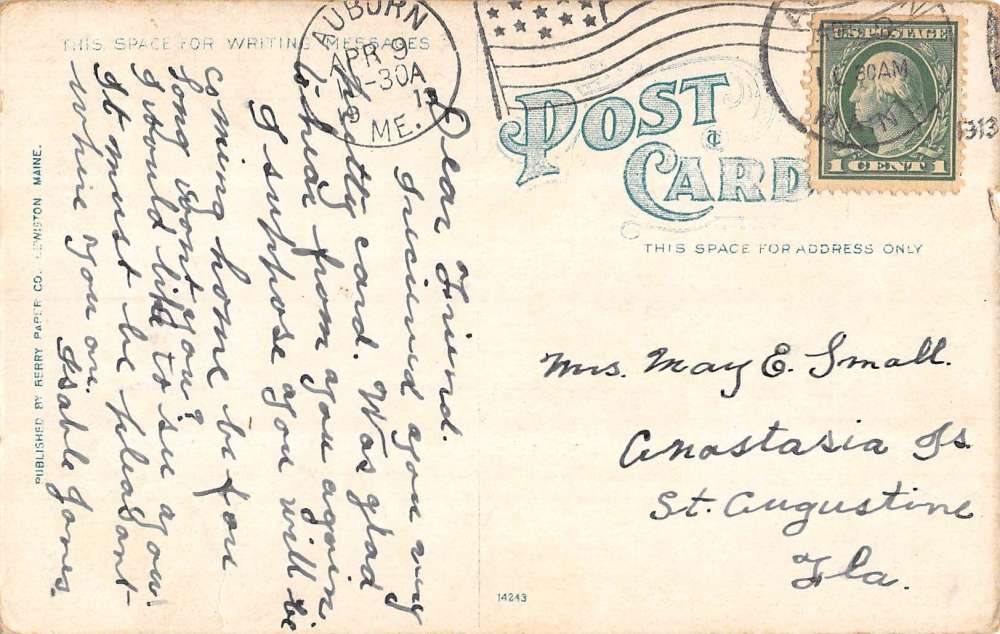 THIS SPACE FOR WRITING MESSAGES
AUBURN
APR 9
-30A
ME.
POST
CARD
U.S. POSTAGE
30AM
1 CENT 1
1913
THIS SPACE FOR ADDRESS ONLY
Dear Friend.
Received your very
pretty card. Was glad
to hear from you again.
I suppose you will be
coming home before
long wont you?
I would like to see you!
It must be pleasant
where you are.
Isable Jones.
Mrs. May E. Small.
Anastasia Is
St. Augustine
Fla.
PUBLISHED BY BERRY PAPER CO. LEWISTON MAINE.
14243